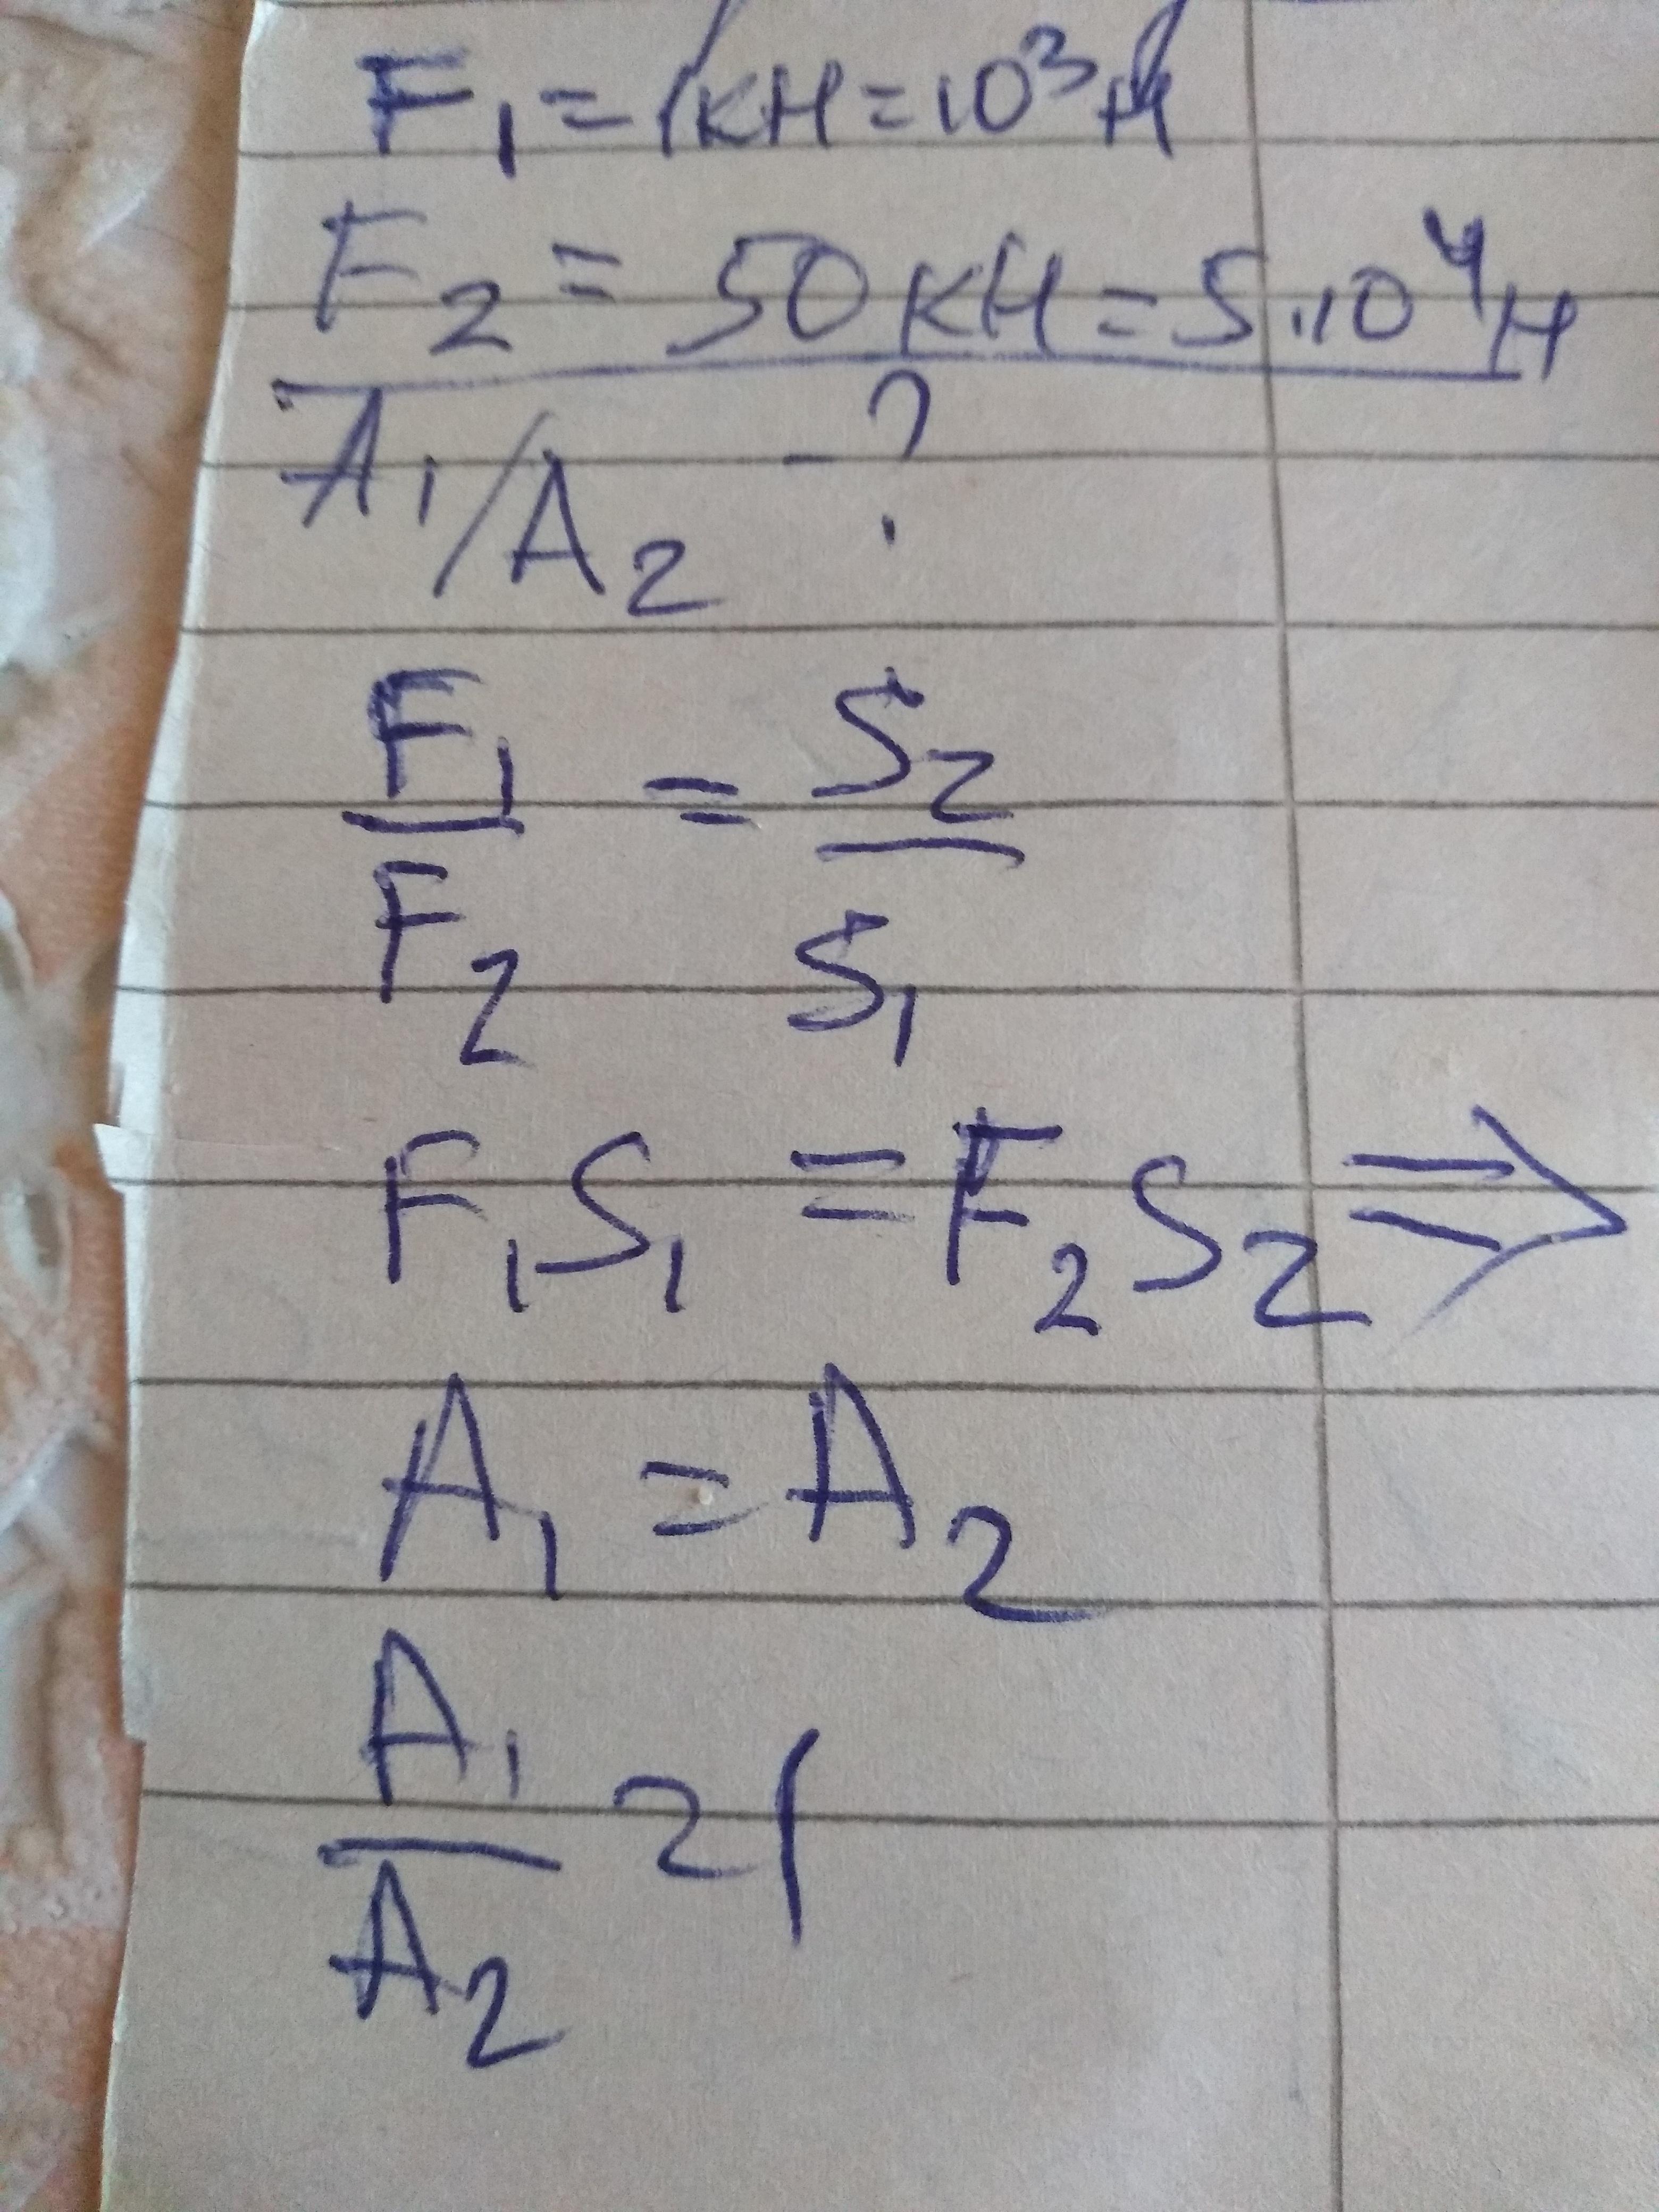 F₁ = 1кН = 10³ Н
F₂ = 50 кН = 5·10⁴ Н
A₁/A₂ - ?
F₁/F₂ = S₂/S₁
F₁S₁ = F₂S₂ ⇒
A₁ = A₂
A₁/A₂ = 1